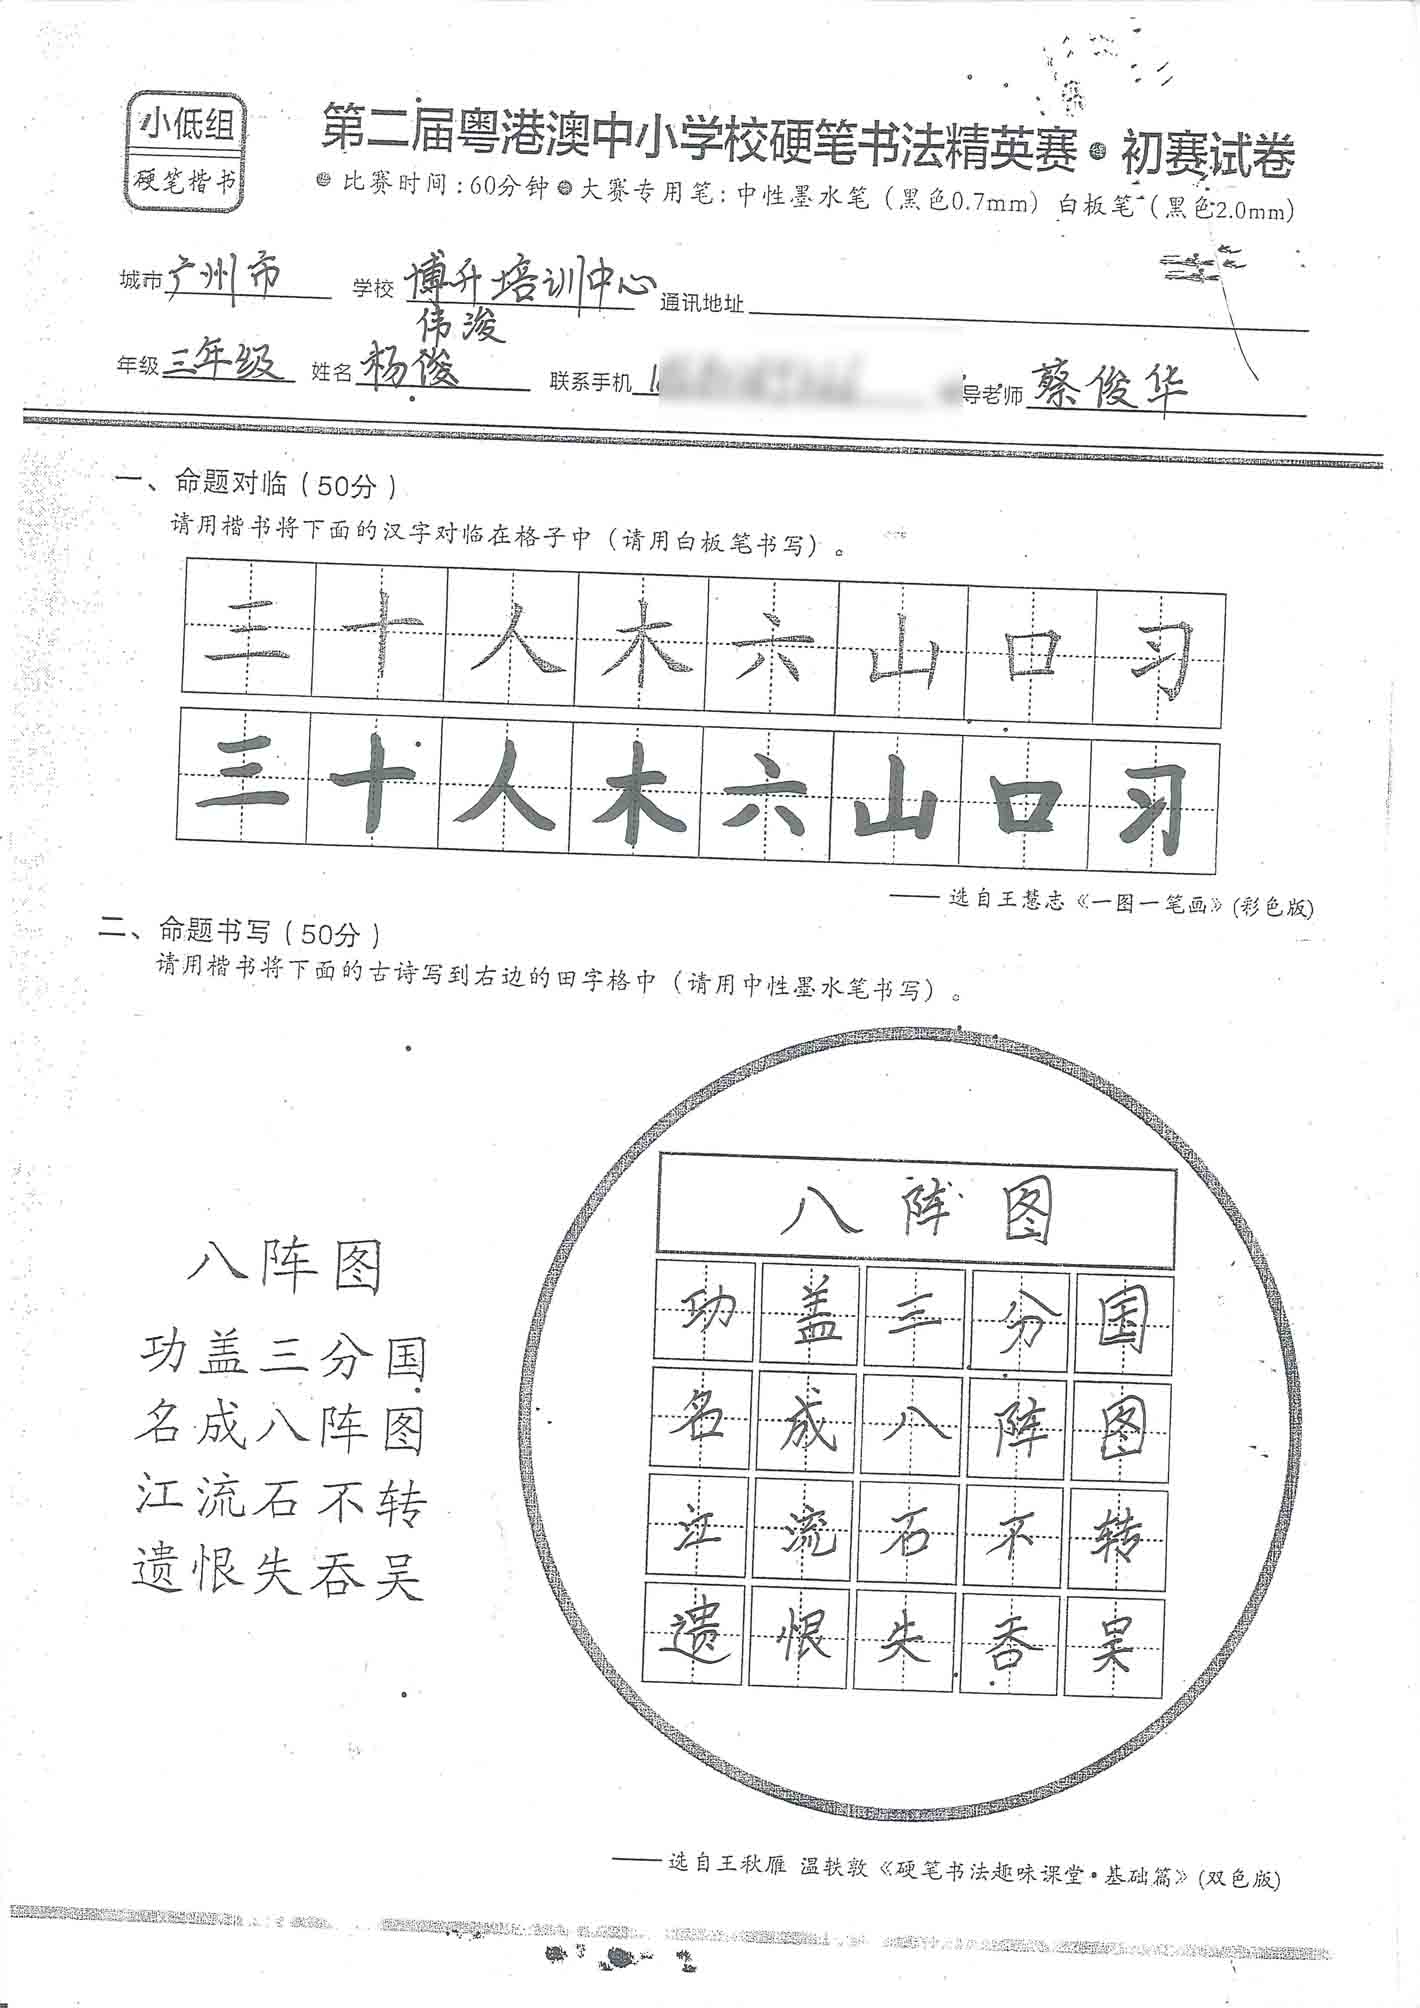 小低组
硬笔楷书
第二届粤港澳中小学校硬笔书法精英赛·初赛试卷
比赛时间：60分钟 大赛专用笔：中性墨水笔（黑色0.7mm）白板笔（黑色2.0mm）
城市 广州市 学校 博升培训中心 通讯地址
伟浚
年级 三年级 姓名 杨俊 联系手机 导老师 蔡俊华
一、命题对临（50分）
请用楷书将下面的汉字对临在格子中（请用白板笔书写）。
三十人木六山口习
三十人木六山口习
——选自王慧志《一图一笔画》(彩色版)
二、命题书写（50分）
请用楷书将下面的古诗写到右边的田字格中（请用中性墨水笔书写）。
八阵图
功盖三分国
名成八阵图
江流石不转
遗恨失吞吴
八阵图
功盖三分国
名成八阵图
江流石不转
遗恨失吞吴
——选自王秋雁 温轶敦《硬笔书法趣味课堂·基础篇》(双色版)